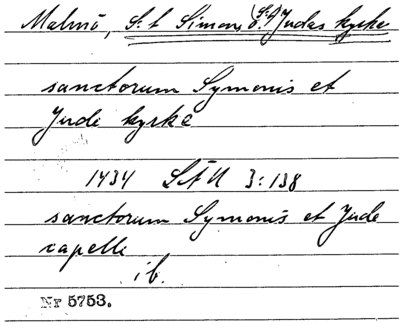 Malmö, S:t Simons o. S:t Judas kyrka
sanctorum Symonis et
Jude kyrke
1434 LÄU 3:138
sanctorum Symonis et Jude
capelle
ib.
Nr 5753.